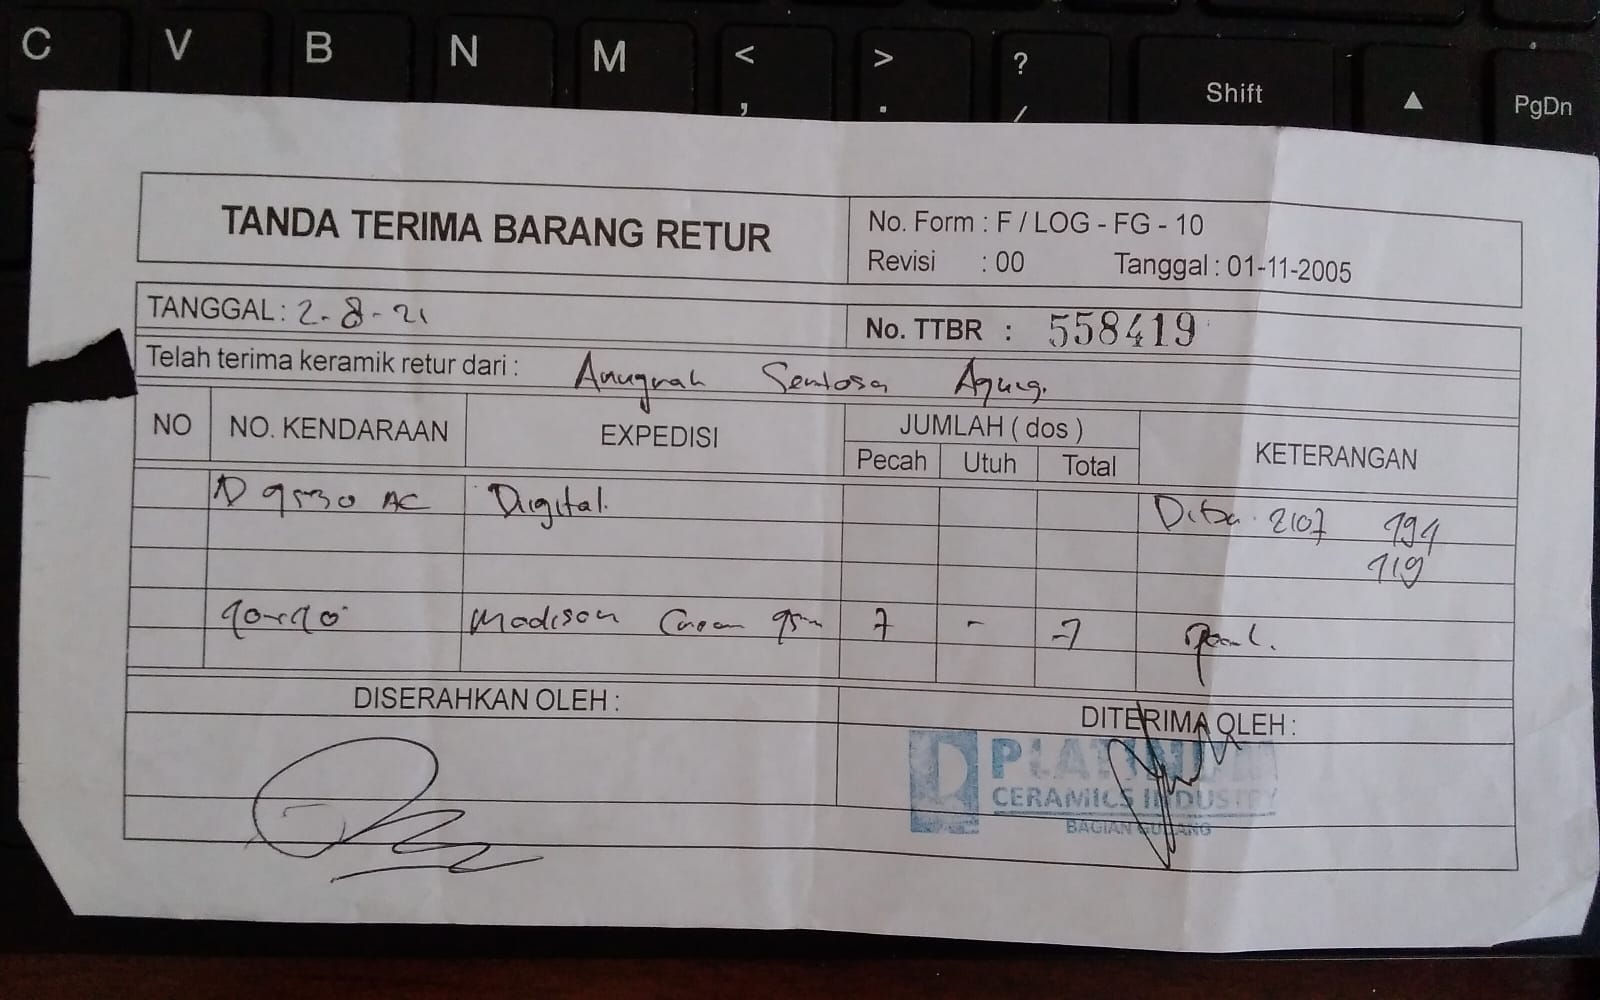 C V B N M < , > . ? / Shift ▲ PgDn
TANDA TERIMA BARANG RETUR
No. Form : F / LOG - FG - 10
Revisi : 00 Tanggal : 01-11-2005
TANGGAL : 2-8-21
No. TTBR : 558419
Telah terima keramik retur dari : Anugrah Sentosa Agung.
NO NO. KENDARAAN EXPEDISI JUMLAH ( dos ) KETERANGAN
Pecah Utuh Total
D 9530 AC Digital. 2107 194
119
Madison 7 - 7
DISERAHKAN OLEH :
DITERIMA OLEH :
PLATINUM
CERAMICS INDUSTRY
BAGIAN GUDANG